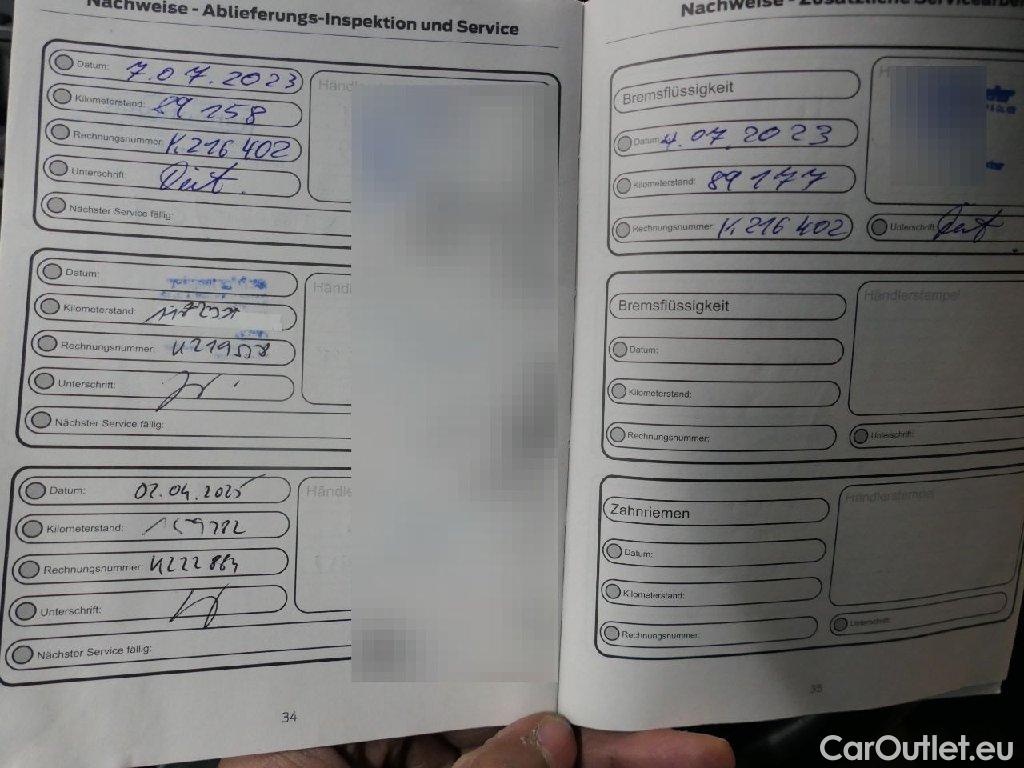 Nachweise - Ablieferungs-Inspektion und Service
Datum: 7.07.2023
Kilometerstand: 89 158
Rechnungsnummer: K216 402
Unterschrift:
Nächster Service fällig:
Datum:
Kilometerstand:
Rechnungsnummer:
Unterschrift:
Nächster Service fällig:
Datum: 02.04.2025
Kilometerstand:
Rechnungsnummer: K222 864
Unterschrift:
Nächster Service fällig:
34
Nachweise - Zusätzliche Servicearbei
Bremsflüssigkeit
Datum: 4.07.2023
Kilometerstand: 89 177
Rechnungsnummer: K216 402
Unterschrift:
Bremsflüssigkeit
Händlerstempel
Datum:
Kilometerstand:
Rechnungsnummer:
Unterschrift:
Zahnriemen
Händlerstempel
Datum:
Kilometerstand:
Rechnungsnummer:
Unterschrift:
35
CarOutlet.eu